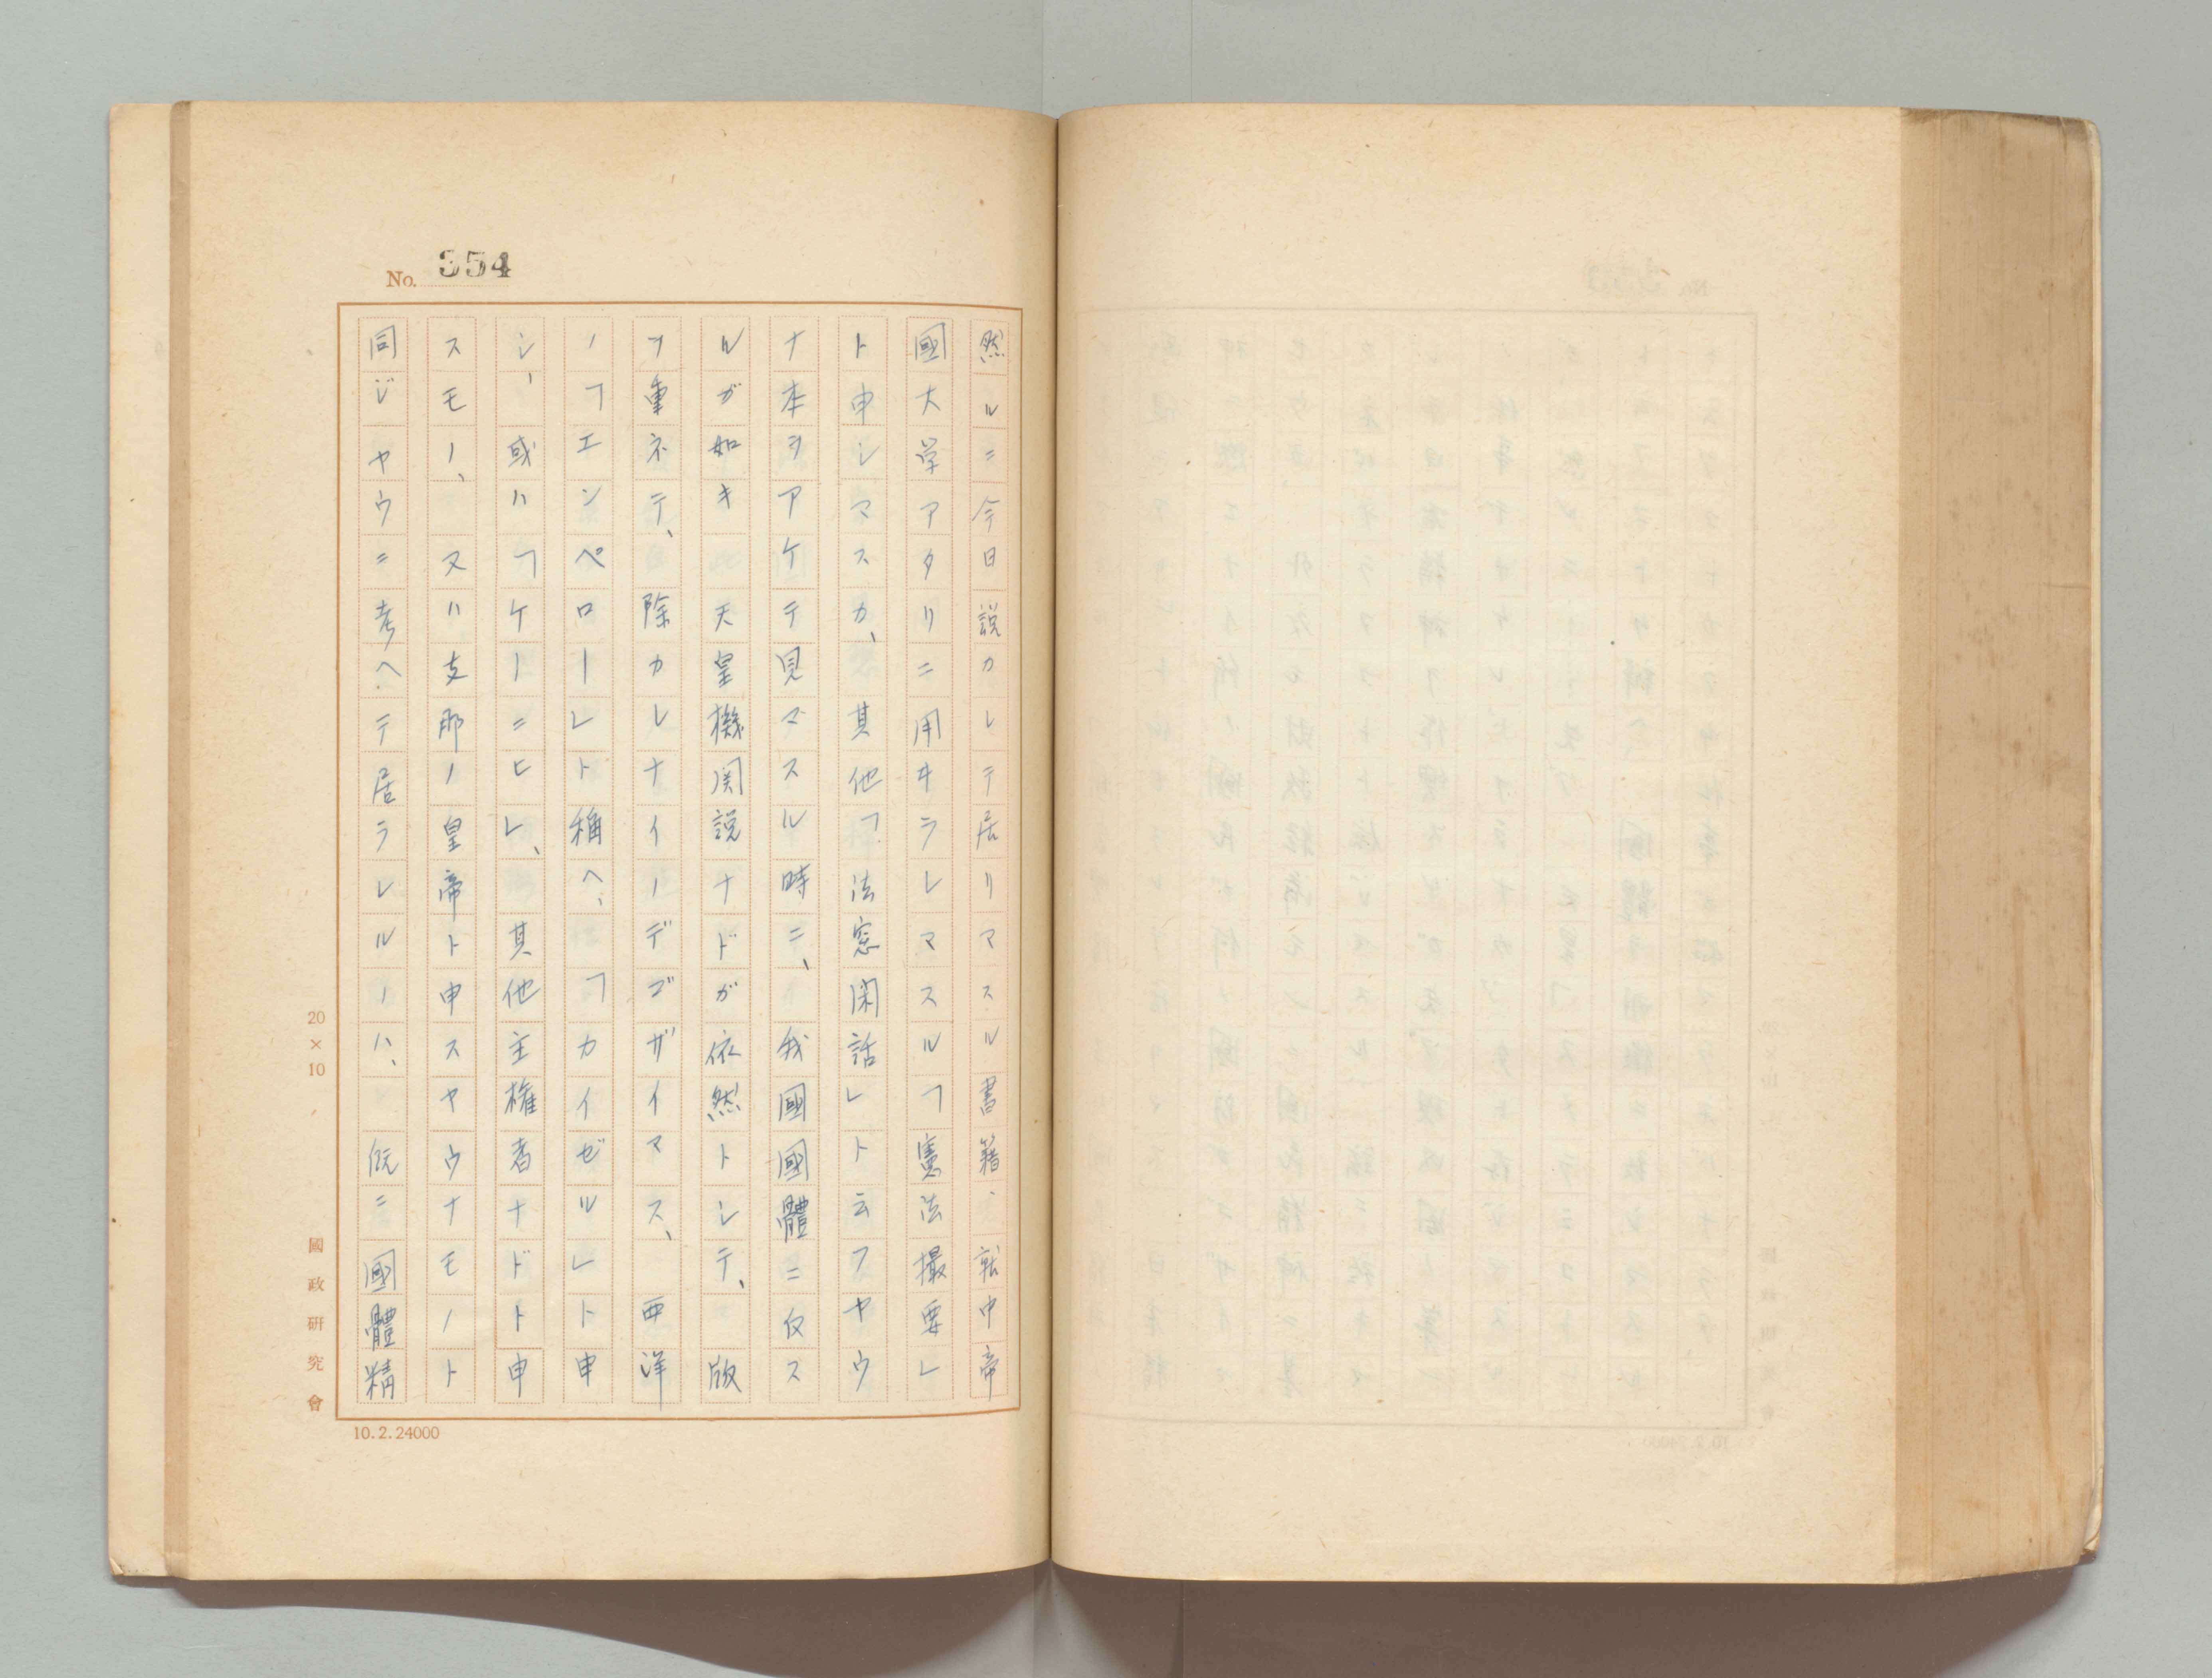 No. 354
然ルニ今日説カレテ居リマスル書籍、就中帝
國大学アタリニ用ヰラレマスル「憲法撮要」
ト申シマスカ、其他「法窓閑話」ト云フヤウ
ナ本ヲアケテ見マスル時ニ、我國國體ニ反ス
ルガ如キ天皇機関説ナドガ依然トシテ、版
ヲ重ネテ、除カレナイノデゴザイマス、西洋
ノ「エンペロー」ト稱ヘ、「カイゼル」ト申
シ、或ハ「ケーニヒ」、其他主権者ナドト申
スモノ、又ハ支那ノ皇帝ト申スヤウナモノト
同ジヤウニ考ヘテ居ラレルノハ、既ニ國體精
20×10
國政研究會
10.2.24000